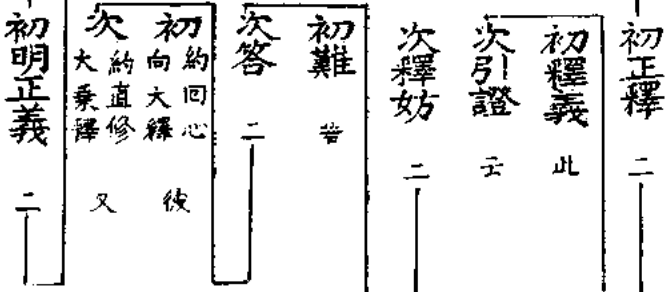 初正釋 二
初釋義 此
次引證 壬
次釋妨 二
初難 若
次答 二
初約回心向大釋 彼
次約直修大乘釋 又
初明正義 二